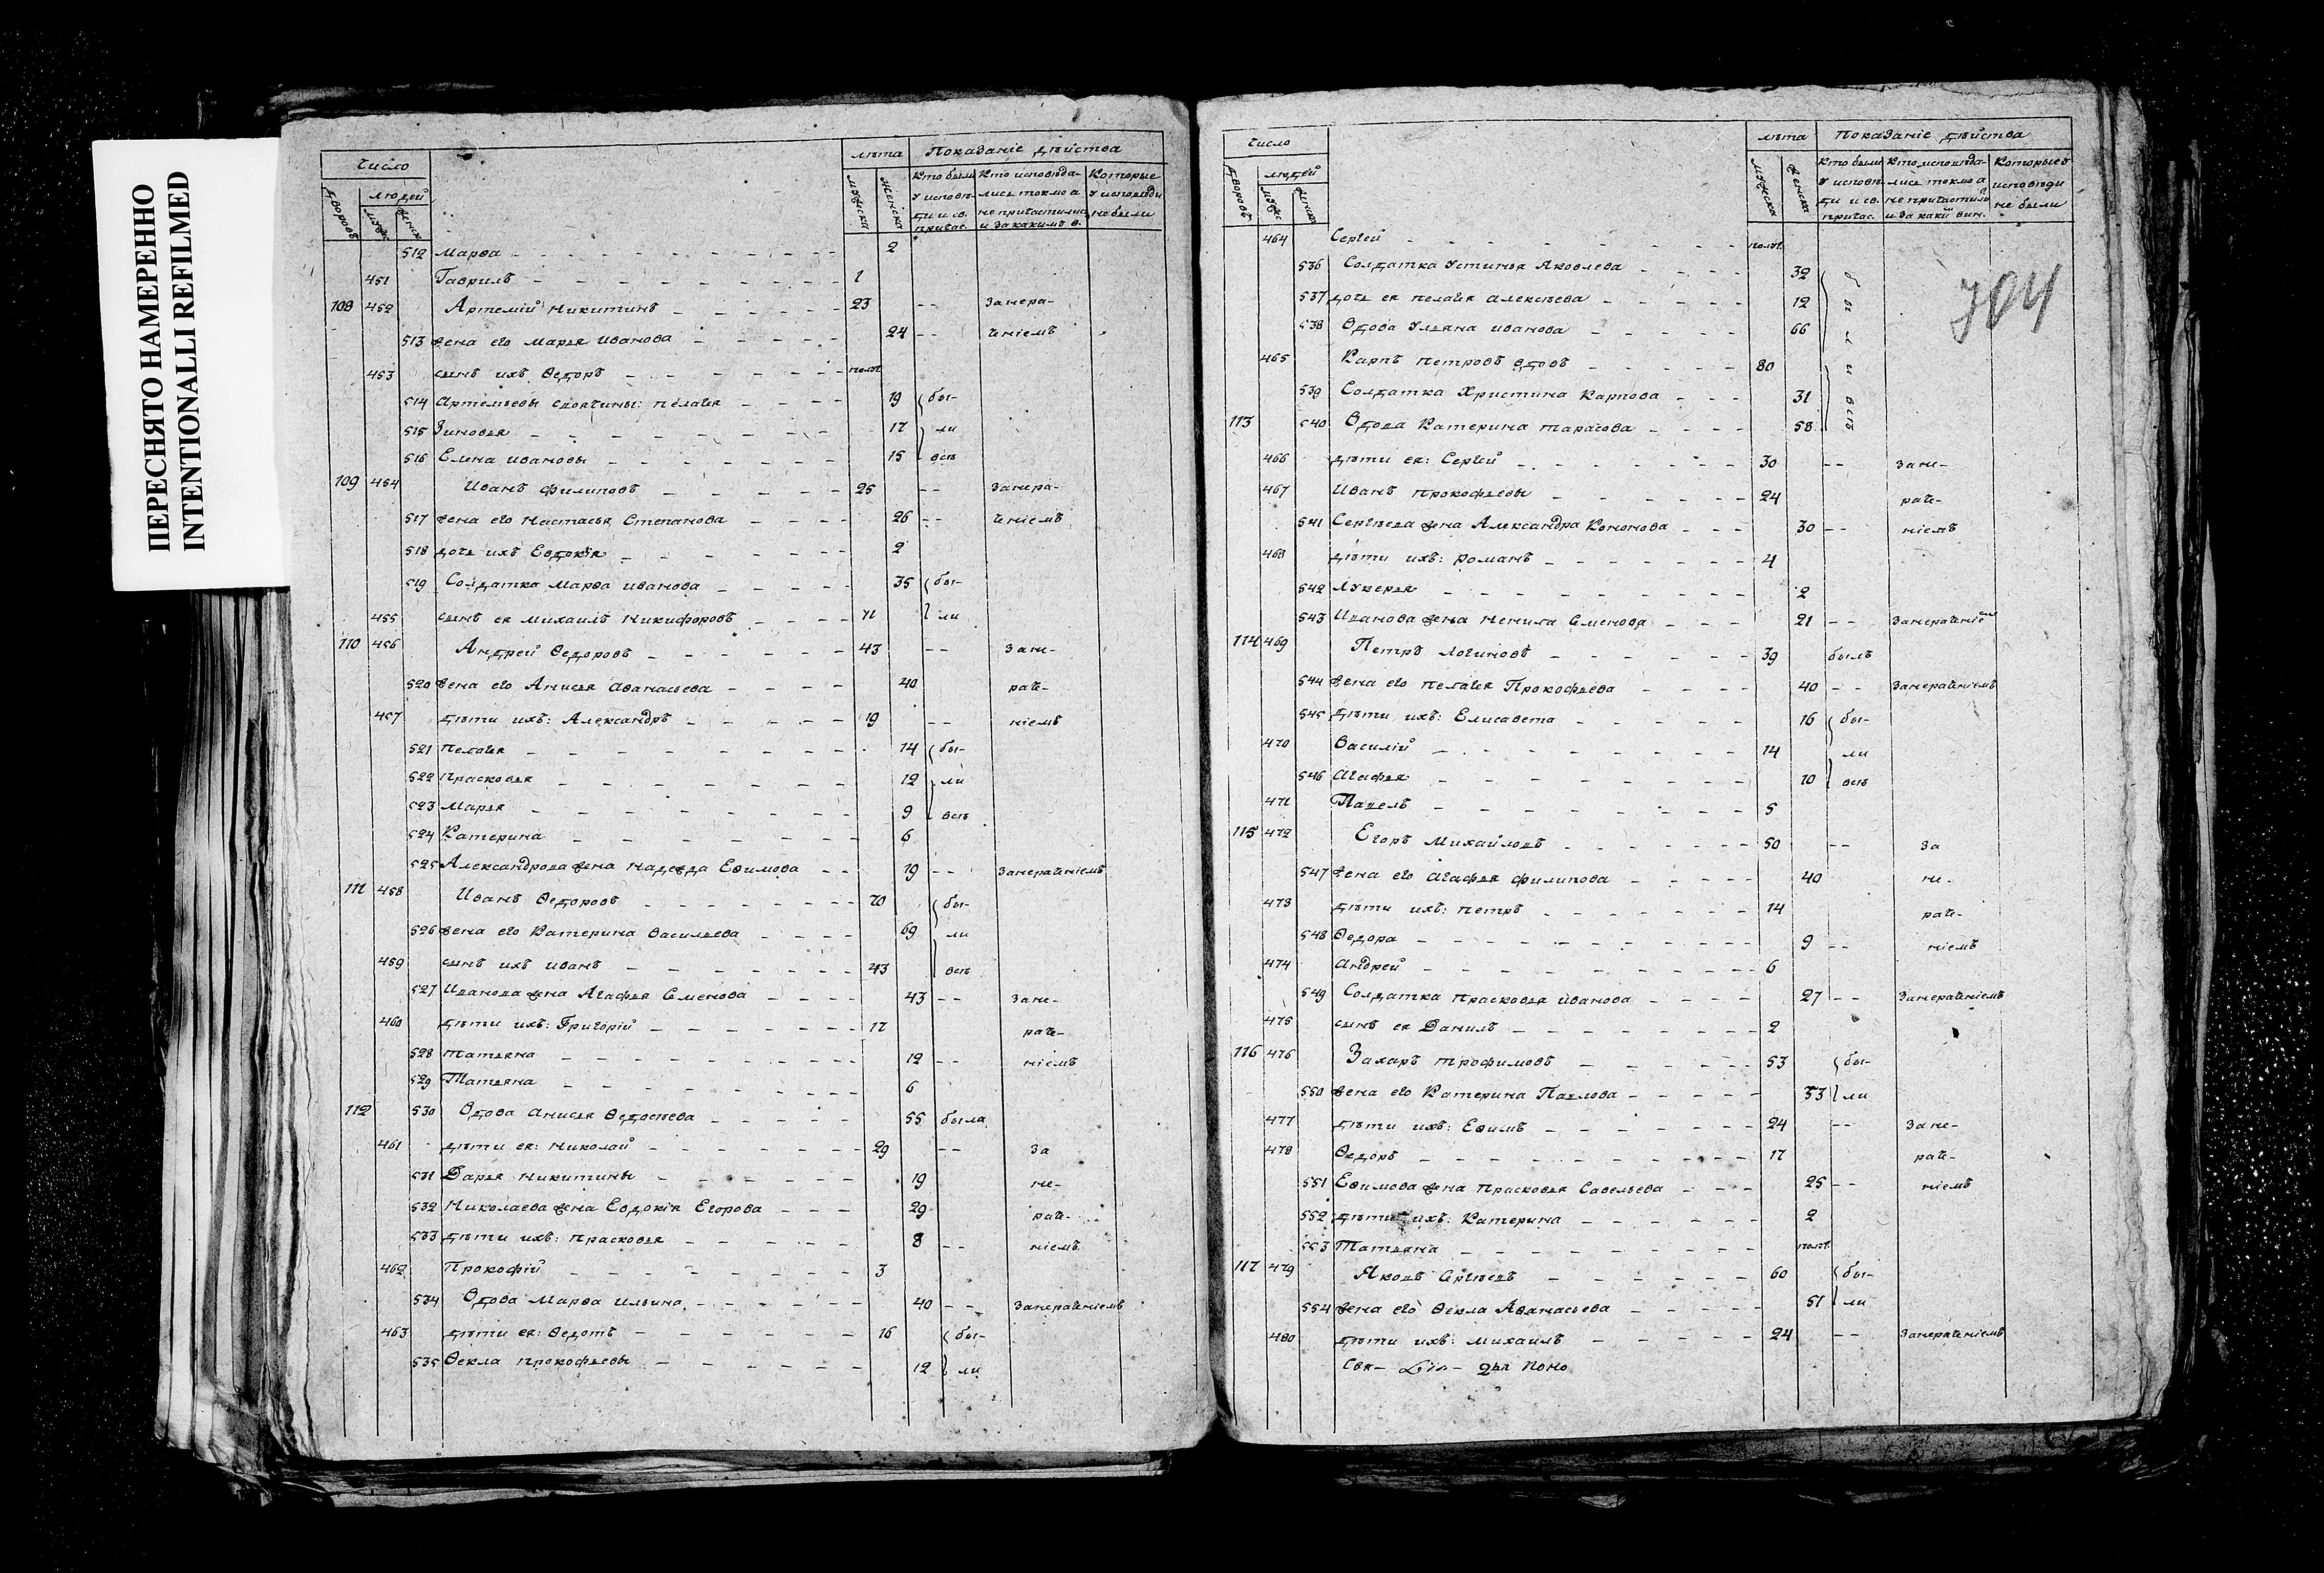 ПЕРЕСНЯТО НАМЕРЕННО
INTENTIONALLI REFILMED
Число лѣта Показаніе дѣйства
Дворовъ людей мужск женск мужеска женска Кто были у исповѣди и св. причас. Кто исповѣдались токмо а не причастились и за какимъ в. Которые у исповѣди не были
512 Марѳа 2
451 Гаврилъ 1
108 452 Артемій Никитинъ 23 -- Занера-
513 жена его Марья Иванова 24 -- ченіемъ
453 сынъ ихъ Ѳедоръ полг.
514 Артемьевы своячины: Пелагея 19 бы-
515 Зиновья 17 ли
516 Елена Ивановы 15 всѣ
109 454 Иванъ Филиповъ 25 -- Занера-
517 жена его Настасья Степанова 26 -- ченіемъ
518 дочь ихъ Евдокія 2
519 Солдатка Марѳа Иванова 35 бы-
455 сынъ ея Михаилъ Никифоровъ 11 ли
110 456 Андрей Ѳедоровъ 43 -- Зане-
520 жена его Анисья Аѳанасьева 40 раче-
457 дѣти ихъ: Александръ 19 -- ніемъ
521 Пелагея 14 бы-
522 Прасковья 12 ли
523 Марья 9 всѣ
524 Катерина 6
525 Александрова жена Надежда Ефимова 19 -- Занераченіемъ
111 458 Иванъ Ѳедоровъ 70 бы-
526 жена его Катерина Васильева 69 ли
459 сынъ ихъ Иванъ 43 всѣ
527 Иванова жена Агафья Семенова 43 -- Зане-
460 дѣти ихъ: Григорій 17 раче-
528 Татьяна 12 -- ніемъ
529 Татьяна 6
112 530 Вдова Анисья Ѳедосѣева 55 была
461 дѣти ея: Николай 29 -- За
531 Дарья Никитины 19 не-
532 Николаева жена Евдокія Егорова 29 раче-
533 дѣти ихъ: Прасковья 8 -- ніемъ
462 Прокофій 3
534 Вдова Марѳа Ильина 40 -- Занераченіемъ
463 дѣти ея: Ѳедотъ 16 бы-
535 Ѳекла Прокофьевы 12 ли
Число лѣта Показаніе дѣйства
Дворовъ людей мужск женск мужеска женска Кто были у исповѣди и св. причас. Кто исповѣдались токмо а не причастили и за какій вин. Которые исповѣди не были
704
464 Сергей полг.
536 Солдатка Устинья Яковлева 32 б
537 дочь ея Пелагея Алексѣева 12 ы
538 Вдова Ульяна Иванова 66 л
465 Карпъ Петровъ вдовъ 80 и
539 Солдатка Христина Карпова 31 всѣ
113 540 Вдова Катерина Тарасова 58
466 дѣти ея: Сергей 30 -- Зане-
467 Иванъ Прокофьевы 24 раче-
541 Сергѣева жена Александра Кононова 30 -- ніемъ
468 дѣти ихъ: Романъ 4
542 Лукерья 2
543 Иванова жена Ненила Семенова 21 -- Занераченіемъ
114 469 Петръ Логиновъ 39 былъ
544 жена его Пелагея Прокофьева 40 -- Занераченіемъ
545 дѣти ихъ: Елисавета 16 бы-
470 Василій 14 ли
546 Агафья 10 всѣ
471 Павелъ 5
115 472 Егоръ Михайловъ 50 -- За
547 жена его Агафья Филипова 40 не-
473 дѣти ихъ: Петръ 14 раче-
548 Ѳедора 9 -- ніемъ
474 Андрей 6
549 Солдатка Прасковья Иванова 27 -- Занераченіемъ
475 сынъ ея Данилъ 2
116 476 Захаръ Трофимовъ 53 бы-
550 жена его Катерина Павлова 53 ли
477 дѣти ихъ: Ефимъ 24 -- Зане-
478 Ѳедоръ 17 раче-
551 Ефимова жена Прасковья Савельева 25 -- ніемъ
552 дѣти ихъ: Катерина 2
553 Татьяна полг.
117 479 Яковъ Сергѣевъ 60 бы-
554 жена его Ѳекла Аѳанасьева 51 ли
480 дѣти ихъ: Михаилъ 24 -- Занераченіемъ